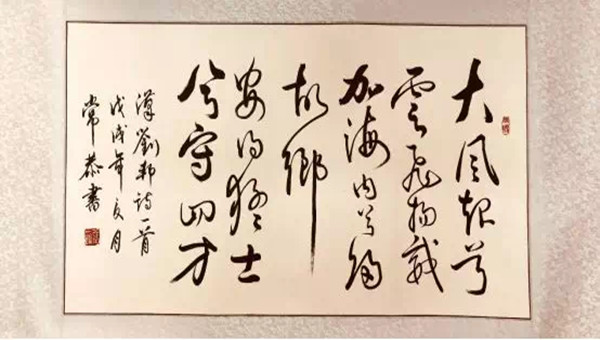 大风起兮
雲飛揚威
加海内兮歸
故鄉
安得猛士
兮守四方
漢劉邦詩一首
戊戌年夏月
常恭書